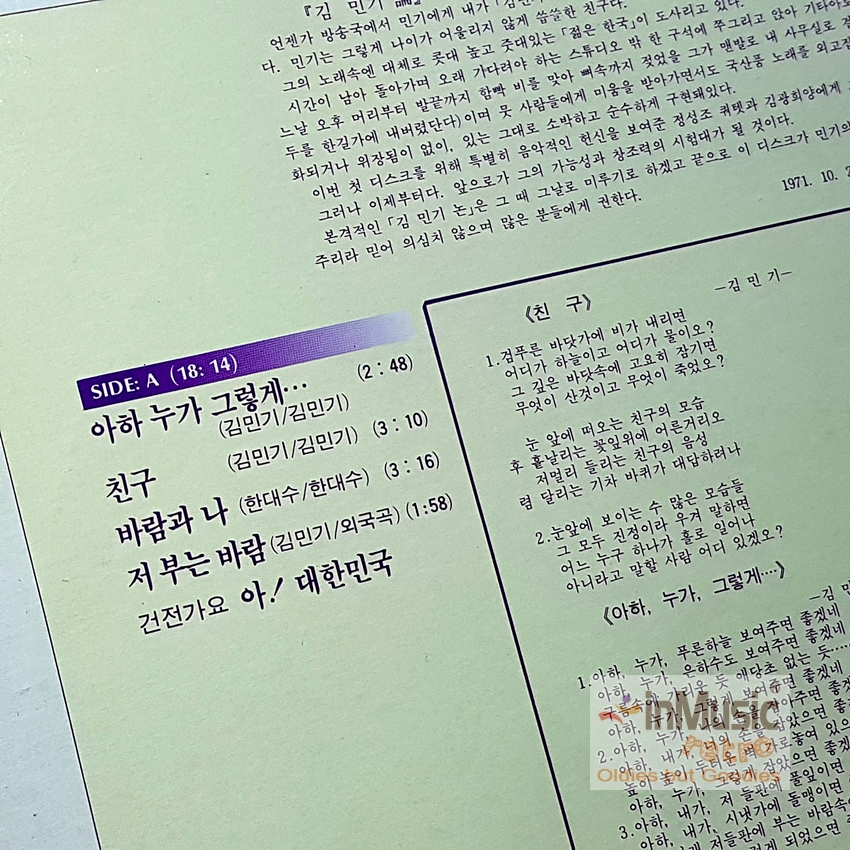 『김 민기
언젠가 방송국에서 민기에게 내가 「김
다. 민기는 그렇게 나이가 어울리지 않게 씁쓸한 친구다.
그의 노래속엔 대체로 콧대 높고 줏대있는 「젊은 한국」이 도사리고 있다.
시간이 남아 돌아가며 오래 기다려야 하는 스튜디오 밖 한 구석에 쭈그리고 앉아 기타아
느날 오후 머리부터 발끝까지 함빡 비를 맞아 뼈속까지 젖었을 그가 맨발로 내 사무실로
두를 한길가에 내버렸단다)이며 뭇 사람들에게 미움을 받아가면서도 국산품 노래를 외고
화되거나 위장됨이 없이, 있는 그대로 소박하고 순수하게 구현돼있다.
이번 첫 디스크를 위해 특별히 음악적인 헌신을 보여준 정성조 쿼텟과 김광희양에게
그러나 이제부터다. 앞으로가 그의 가능성과 창조력의 시험대가 될 것이다.
본격적인 「김 민기 논」은 그 때 그날로 미루기로 하겠고 끝으로 이 디스크가 민기의
주리라 믿어 의심치 않으며 많은 분들에게 권한다.
1971. 10.
SIDE: A (18: 14)
아하 누가 그렇게… (2 : 48)
(김민기/김민기)
친구 (김민기/김민기) (3 : 10)
바람과 나 (한대수/한대수) (3 : 16)
저 부는 바람 (김민기/외국곡) (1:58)
건전가요 아! 대한민국
《친 구》
—김 민 기—
1. 검푸른 바닷가에 비가 내리면
어디가 하늘이고 어디가 물이오?
그 깊은 바닷속에 고요히 잠기면
무엇이 산것이고 무엇이 죽었오?
눈 앞에 떠오는 친구의 모습
후 흩날리는 꽃잎위에 어른거리오
저멀리 들리는 친구의 음성
렴 달리는 기차 바퀴가 대답하려나
2. 눈앞에 보이는 수 많은 모습들
그 모두 진정이라 우겨 말하면
어느 누구 하나가 홀로 일어나
아니라고 말할 사람 어디 있겠오?
《아하, 누가, 그렇게…》
—김 민
1. 아하, 누가, 푸른하늘 보여주면 좋겠네
아하, 누가, 은하수도 보여주면 좋겠네
구름속에 가리운 듯 애당초 없는 듯……
아하, 누가, 그렇게 보여주면 좋겠네
2. 아하, 내가,
아하, 내가,
아하, 누가, 그렇게 잡았으면 좋
3. 아하, 내가, 저 들판에 풀잎이면
아하, 내가, 시냇가에 돌맹이면
저들판에 부는 바람속
inMusic
Retro
Oldies but Goodies